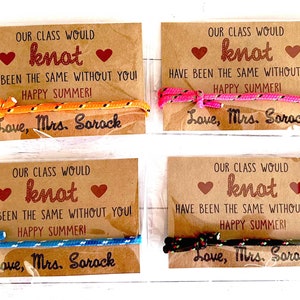 OUR CLASS WOULD
knot
HAVE BEEN THE SAME WITHOUT YOU!
HAPPY SUMMER!
Love, Mrs. Sorock
OUR CLASS WOULD
knot
HAVE BEEN THE SAME WITHOUT YOU!
HAPPY SUMMER!
Love, Mrs. Sorock
OUR CLASS WOULD
knot
HAVE BEEN THE SAME WITHOUT YOU!
HAPPY SUMMER!
Love, Mrs. Sorock
OUR CLASS WOULD
knot
HAVE BEEN THE SAME WITHOUT YOU!
HAPPY SUMMER!
Love, Mrs. Sorock